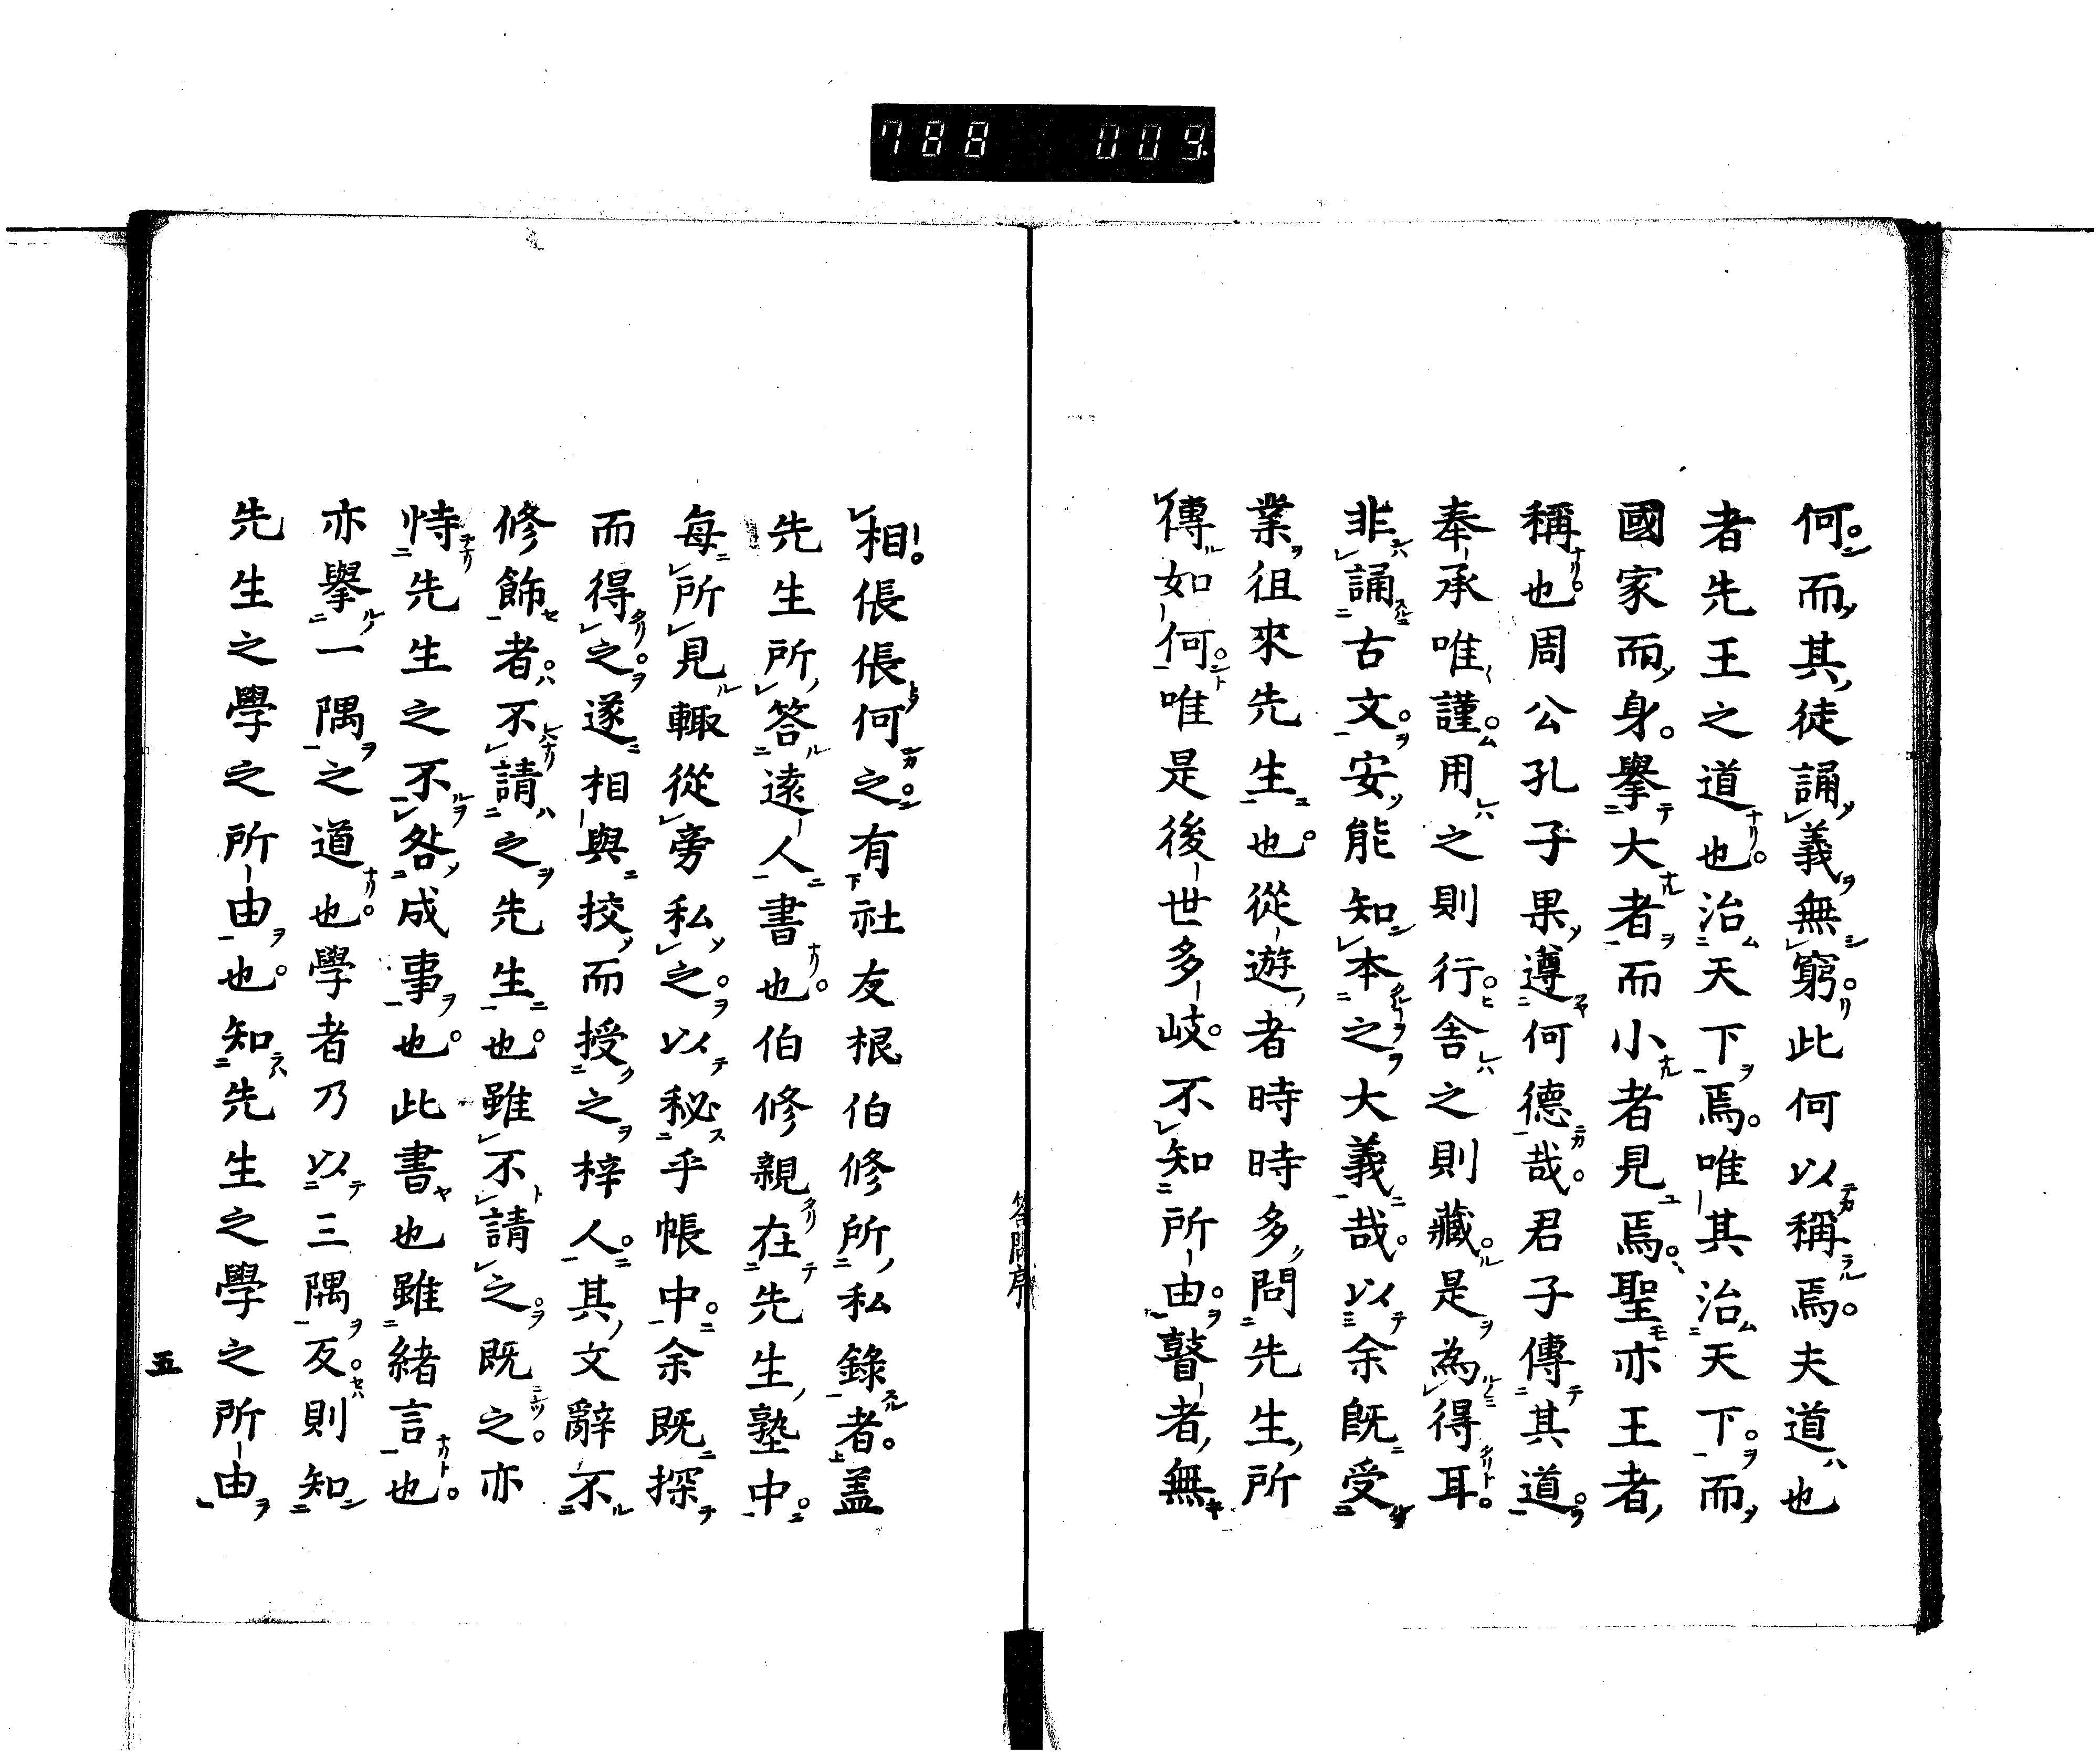 788 009
何而其徒誦義無窮此何以稱焉夫道也
者先王之道也治天下焉唯其治天下而
國家而身擧大者而小者見焉聖亦王者
稱也周公孔子果遵何德哉君子傳其道
奉承唯謹用之則行舍之則藏是為得耳
非誦古文安能知本之大義哉以余既受
業徂來先生也從遊者時時多問先生所
傳如何唯是後世多岐不知所由瞽者無
答問序
相倀倀何之有社友根伯修所私錄者蓋
先生所答遠人書也伯修親在先生塾中
每所見輙從旁私之以秘乎帳中余既探
而得之遂相與挍而授之梓人其文辭不
修飾者不請之先生也雖不請之既之亦
恃先生之不咎成事也此書也雖緒言也
亦擧一隅之道也學者乃以三隅反則知
先生之學之所由也知先生之學之所由
五